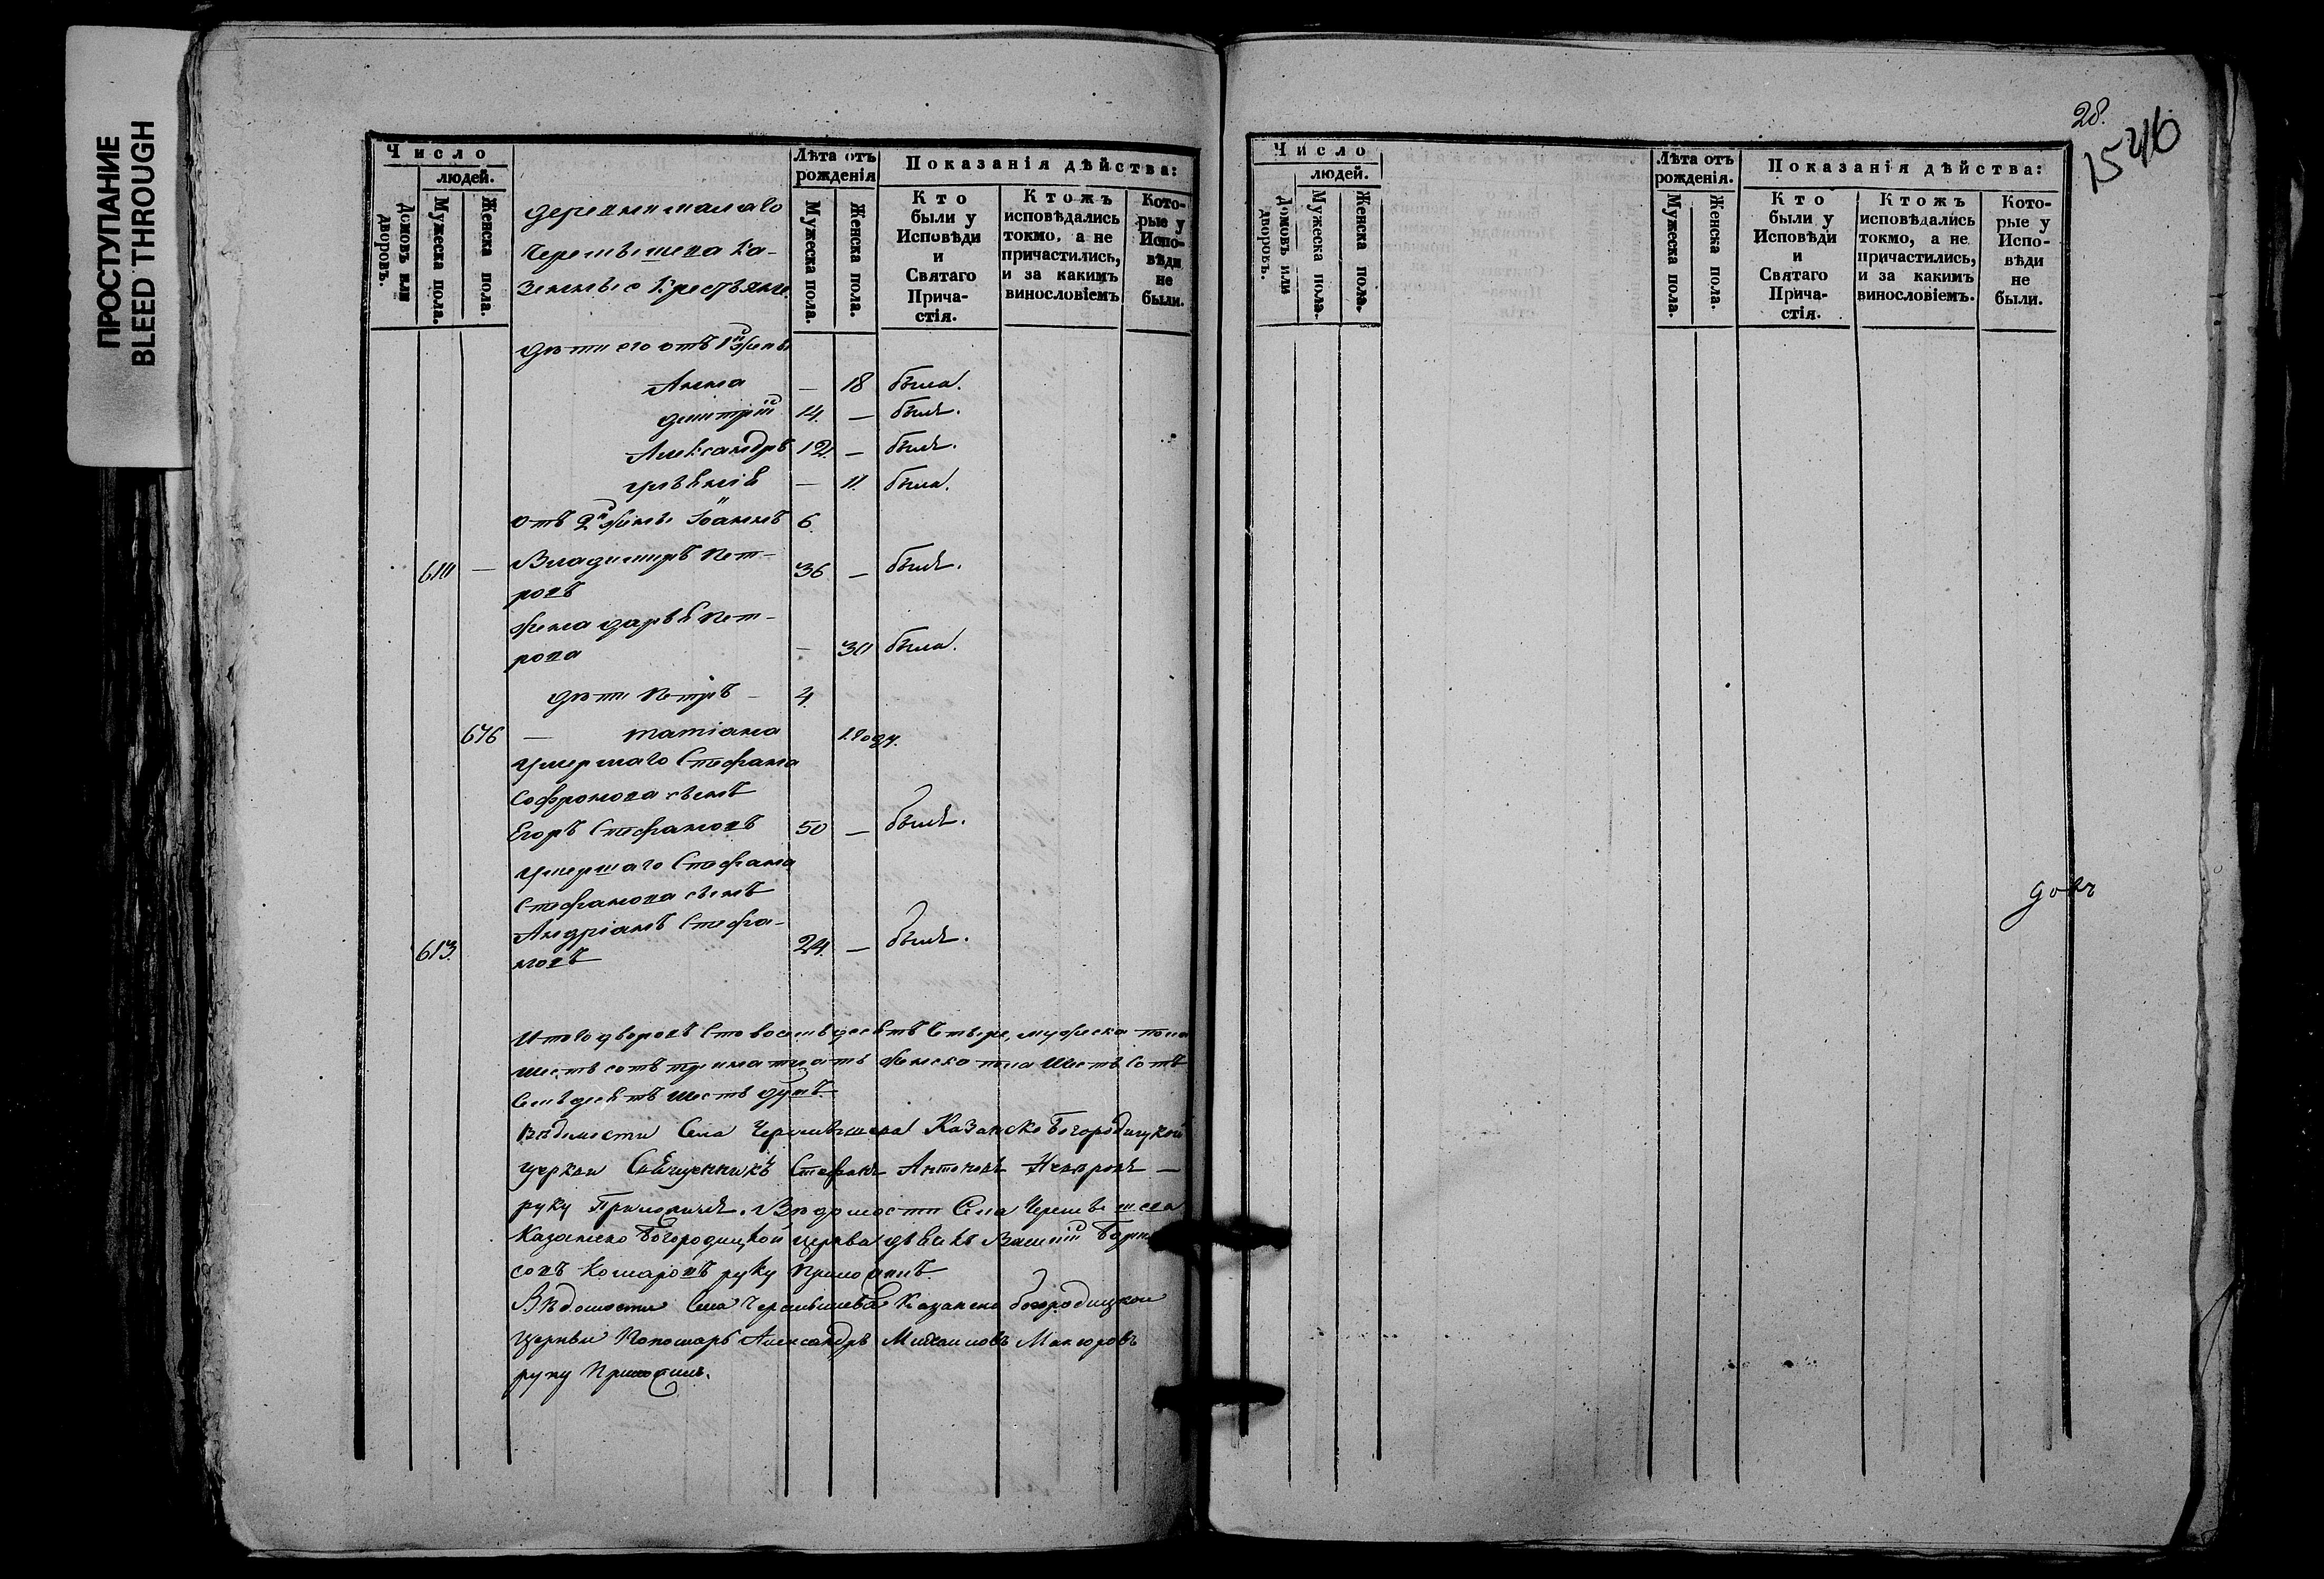 ПРОСТУПАНИЕ
BLEED THROUGH
Число
людей.
Домовъ или дворовъ.
Мужеска пола.
Женска пола.
деревни малаго
Черемышева Ка-
зенные Крестьяне
Лѣта отъ рожденія
Мужеска пола.
Женска пола.
Показанія дѣйства:
Кто были у Исповѣди и Святаго Прича-стія.
Ктожъ исповѣдались токмо, а не причастились, и за какимъ винословіемъ
Кото-рые у Испо-вѣди не были.
дѣти его отъ 1й жены
Анна — 18 была.
Димитрій 14. — былъ.
Александръ 12. — былъ.
— 11. была.
отъ 2й жены Іоаннъ 6.
610 — Владимиръ Пет-
ровъ 36 — былъ.
жена дарья Пет-
рова — 30 была.
дѣти Петръ — 4.
676 — татіана 1 году.
умершаго Стефана
Софронова сынъ
Егоръ Стефановъ 50 — былъ.
умершаго Стефана
Стефанова сынъ
Андріанъ Стефа-
613. новъ 24. — былъ.
Итого дворовъ Сто восемьдесятъ Четыре, мужеска пола
шесть сотъ тринатцать женска пола Шесть Сотъ
Семьдесятъ шесть душъ.
Вѣдомости Села Черемышева Казанско Богородицкой
церкви Священникъ Стефанъ Антоновъ —
руку Приложилъ. Вѣдомости Села Черемышева
Казанско Богородицкой церкви дьячокъ Василій Бори-
совъ Комаровъ руку приложилъ.
Вѣдомости Села Черемышева Казанско богородицкой
Церкви Пономарь Александръ Михаиловъ
руку Приложилъ.
28.
1546
Число
людей.
Домовъ или дворовъ.
Мужеска пола.
Женска пола.
Лѣта отъ рожденія.
Мужеска пола.
Женска пола.
Показанія дѣйства:
Кто были у Исповѣди и Святаго Прича-стія.
Ктожъ исповѣдались токмо, а не причастились, и за какимъ винословіемъ.
Кото-рые у Испо-вѣди не были.